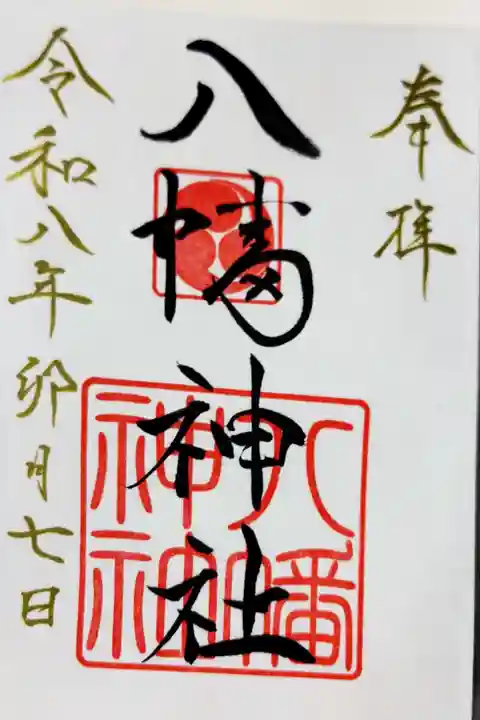 奉拝
八幡神社
八幡神社
令和八年卯月七日